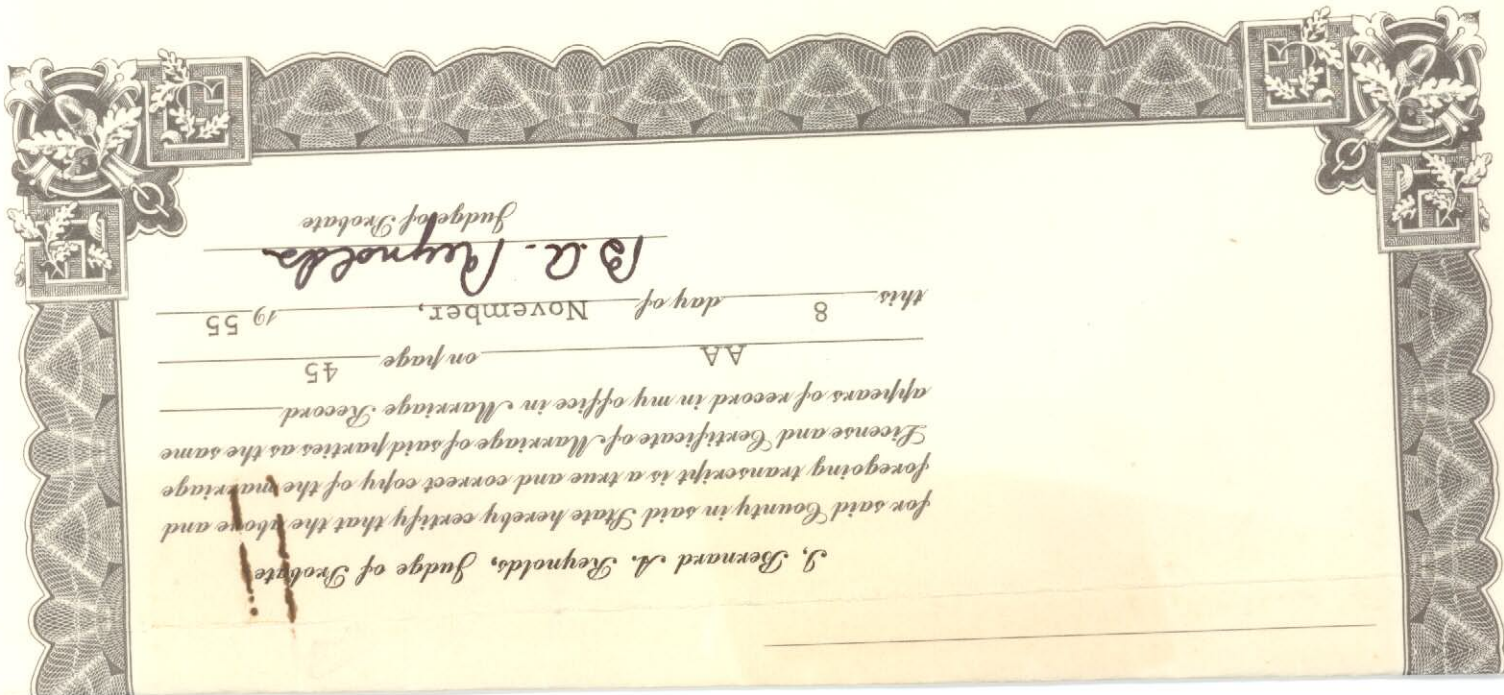 I, Bernard A. Reynolds, Judge of Probate
for said County in said State hereby certify that the above and
foregoing transcript is a true and correct copy of the marriage
License and Certificate of Marriage of said parties as the same
appears of record in my office in Marriage Record
AA on page 45
this 8 day of November, 19 55
B. A. Reynolds
Judge of Probate